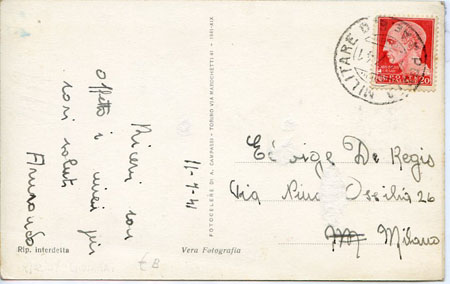 Ricevi con
affetto i miei più
cari saluti
Armando
11-4-41
FOTOCELERE DI A. CAMPASSI - TORINO VIA MAROCHETTI 41 - 1941-XIX
Rip. interdetta
Vera Fotografia
MILITARE
20
De Regis
Via Nino Ossilia 26
Milano